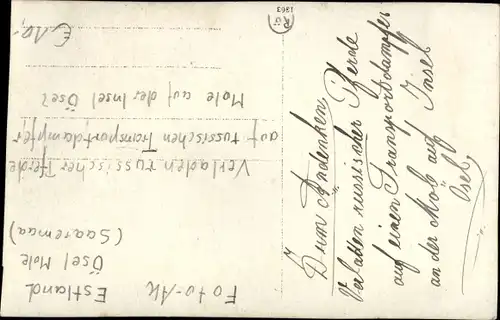 Foto-AK
Estland
Ösel Mole
(Saaremaa)
Verladen russischer Pferde
auf russischen Transportdampfer
Mole auf der Insel Ösel
Rü
1363
Zum Andenken
Verladen russischer Pferde
auf einen Transportdampfer
an der Mole auf Insel
Ösel